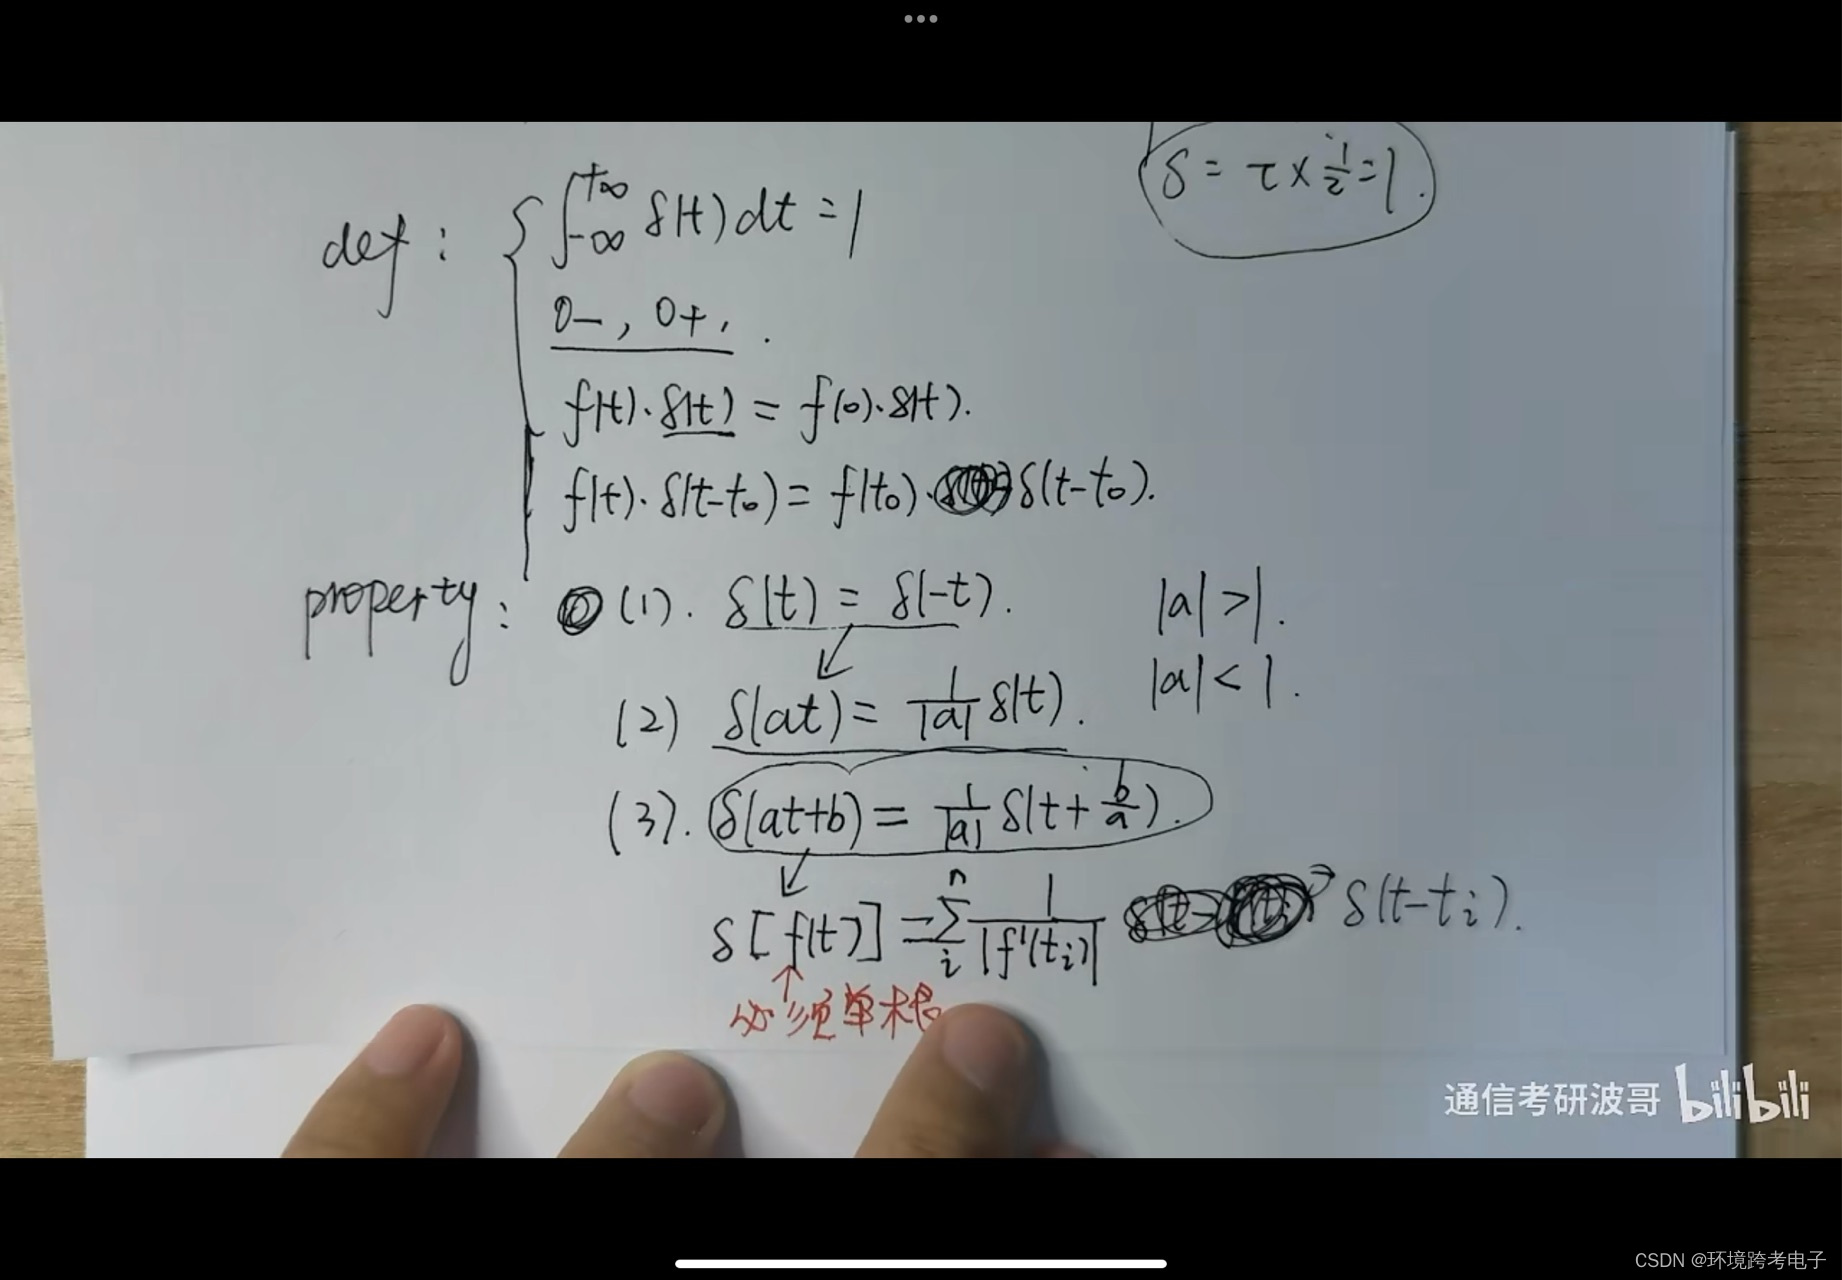 δ = τ × 1/2 = 1.
def: { ∫_{-∞}^{+∞} δ(t) dt = 1
0-, 0+, .
f(t)·δ(t) = f(0)·δ(t).
f(t)·δ(t-t₀) = f(t₀)·δ(t-t₀).
property: (1). δ(t) = δ(-t). |a|>1.
|a|<1.
(2) δ(at) = 1/|a| δ(t).
(3). δ(at+b) = 1/|a| δ(t+b/a).
δ[f(t)] = ∑_i^n 1/|f'(t_i)| δ(t-t_i).
必须单根
通信考研波哥 bilibili
CSDN @环境跨考电子